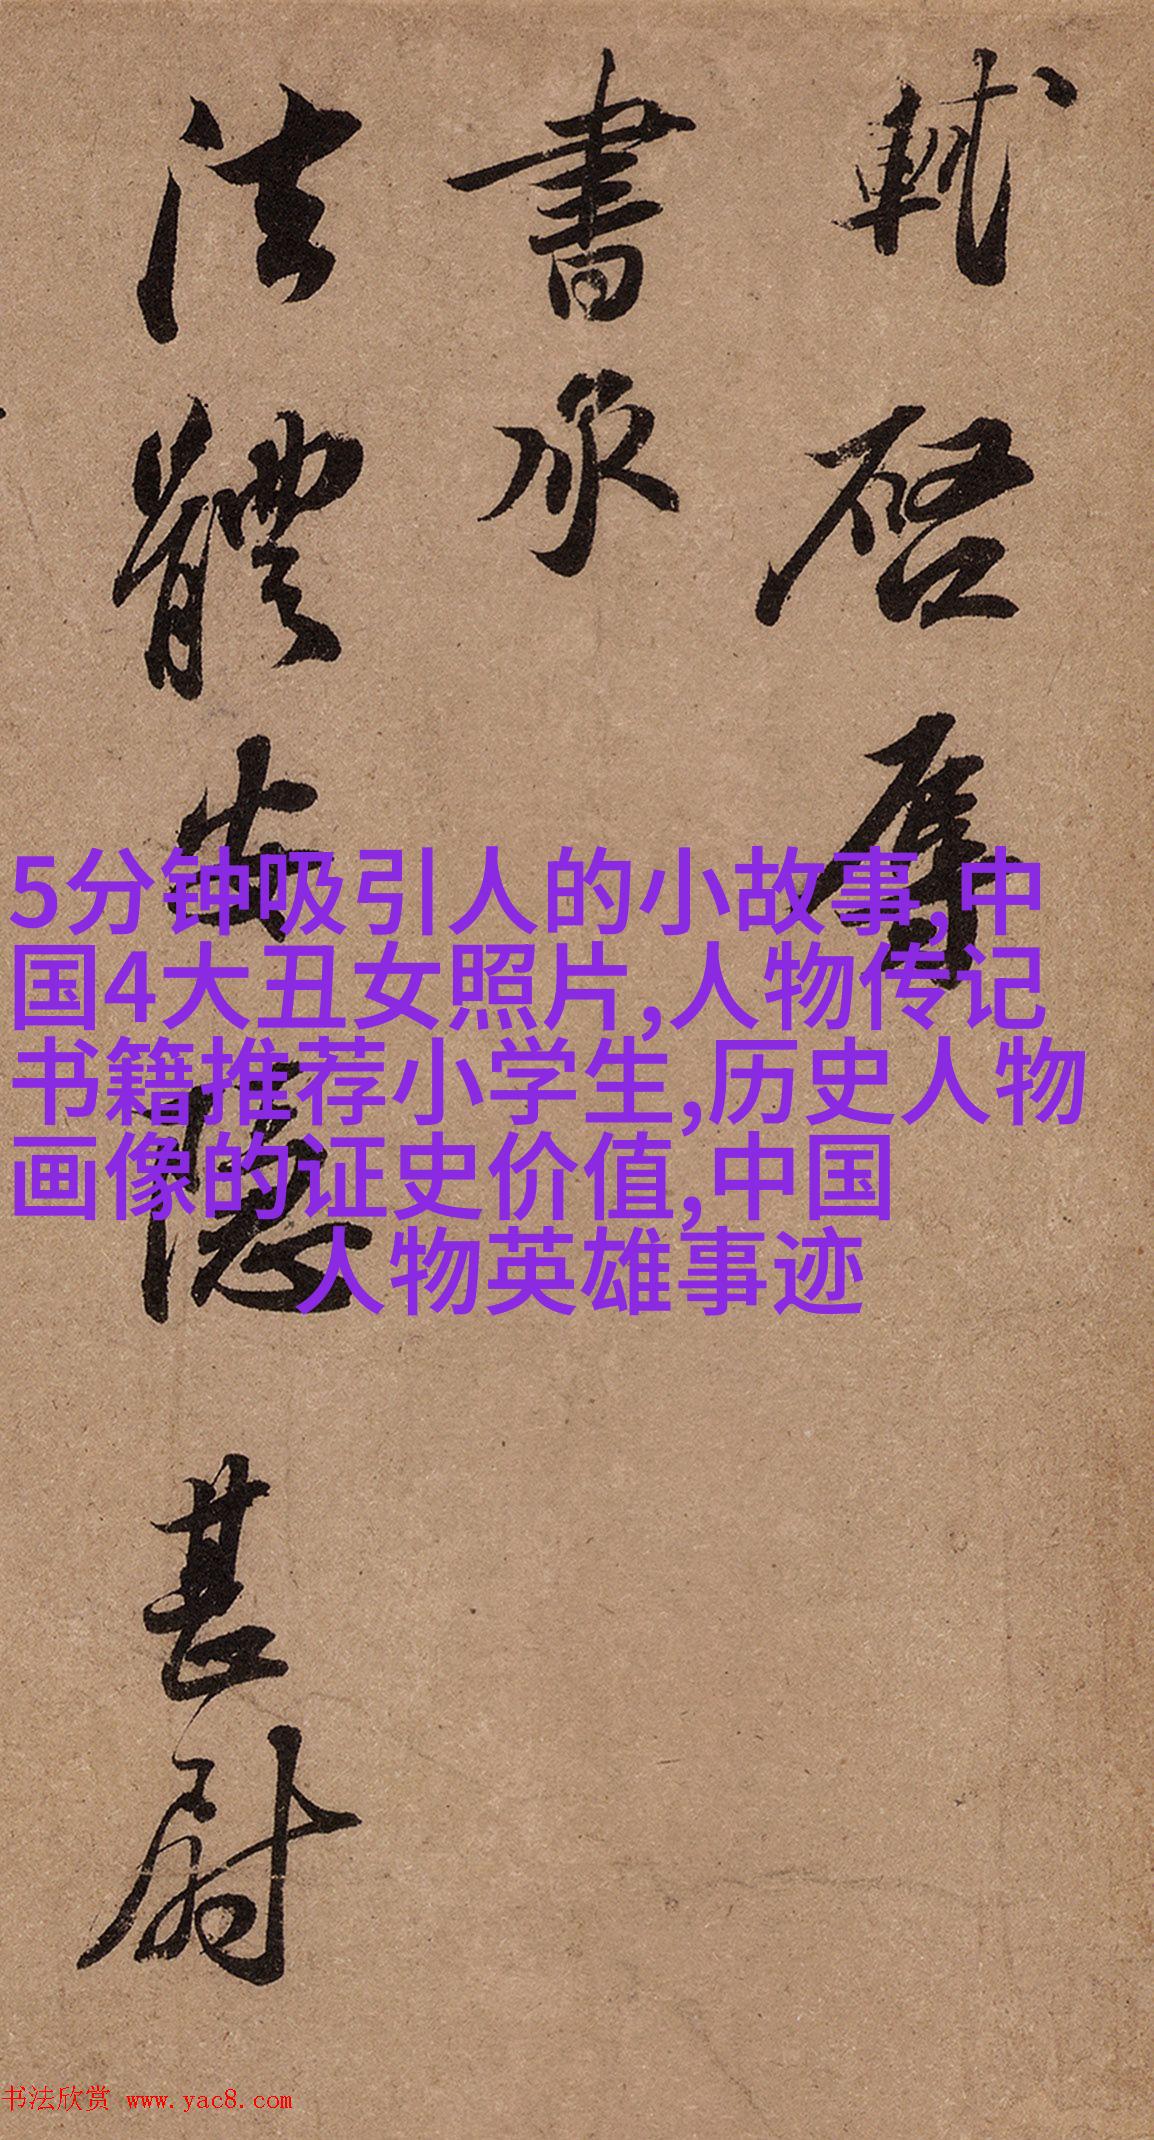 軾啓辱
書承
法體安隱甚尉
5分钟吸引人的小故事,中
国4大丑女照片,人物传记
书籍推荐小学生,历史人物
画像的证史价值,中国
人物英雄事迹
书法欣赏 www.yac8.com